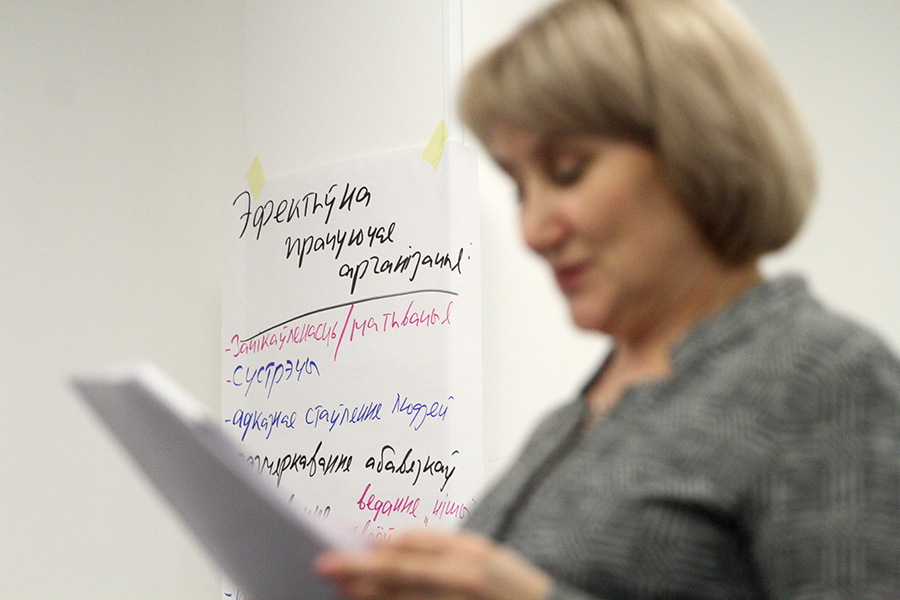 Эфектыўна
працуючая
арганізацыя:
- Зацікаўленасць/матывацыя
- Сустрэчы
- адказнае стаўленне людзей
размеркаванне абавязкаў
веданне "нішы